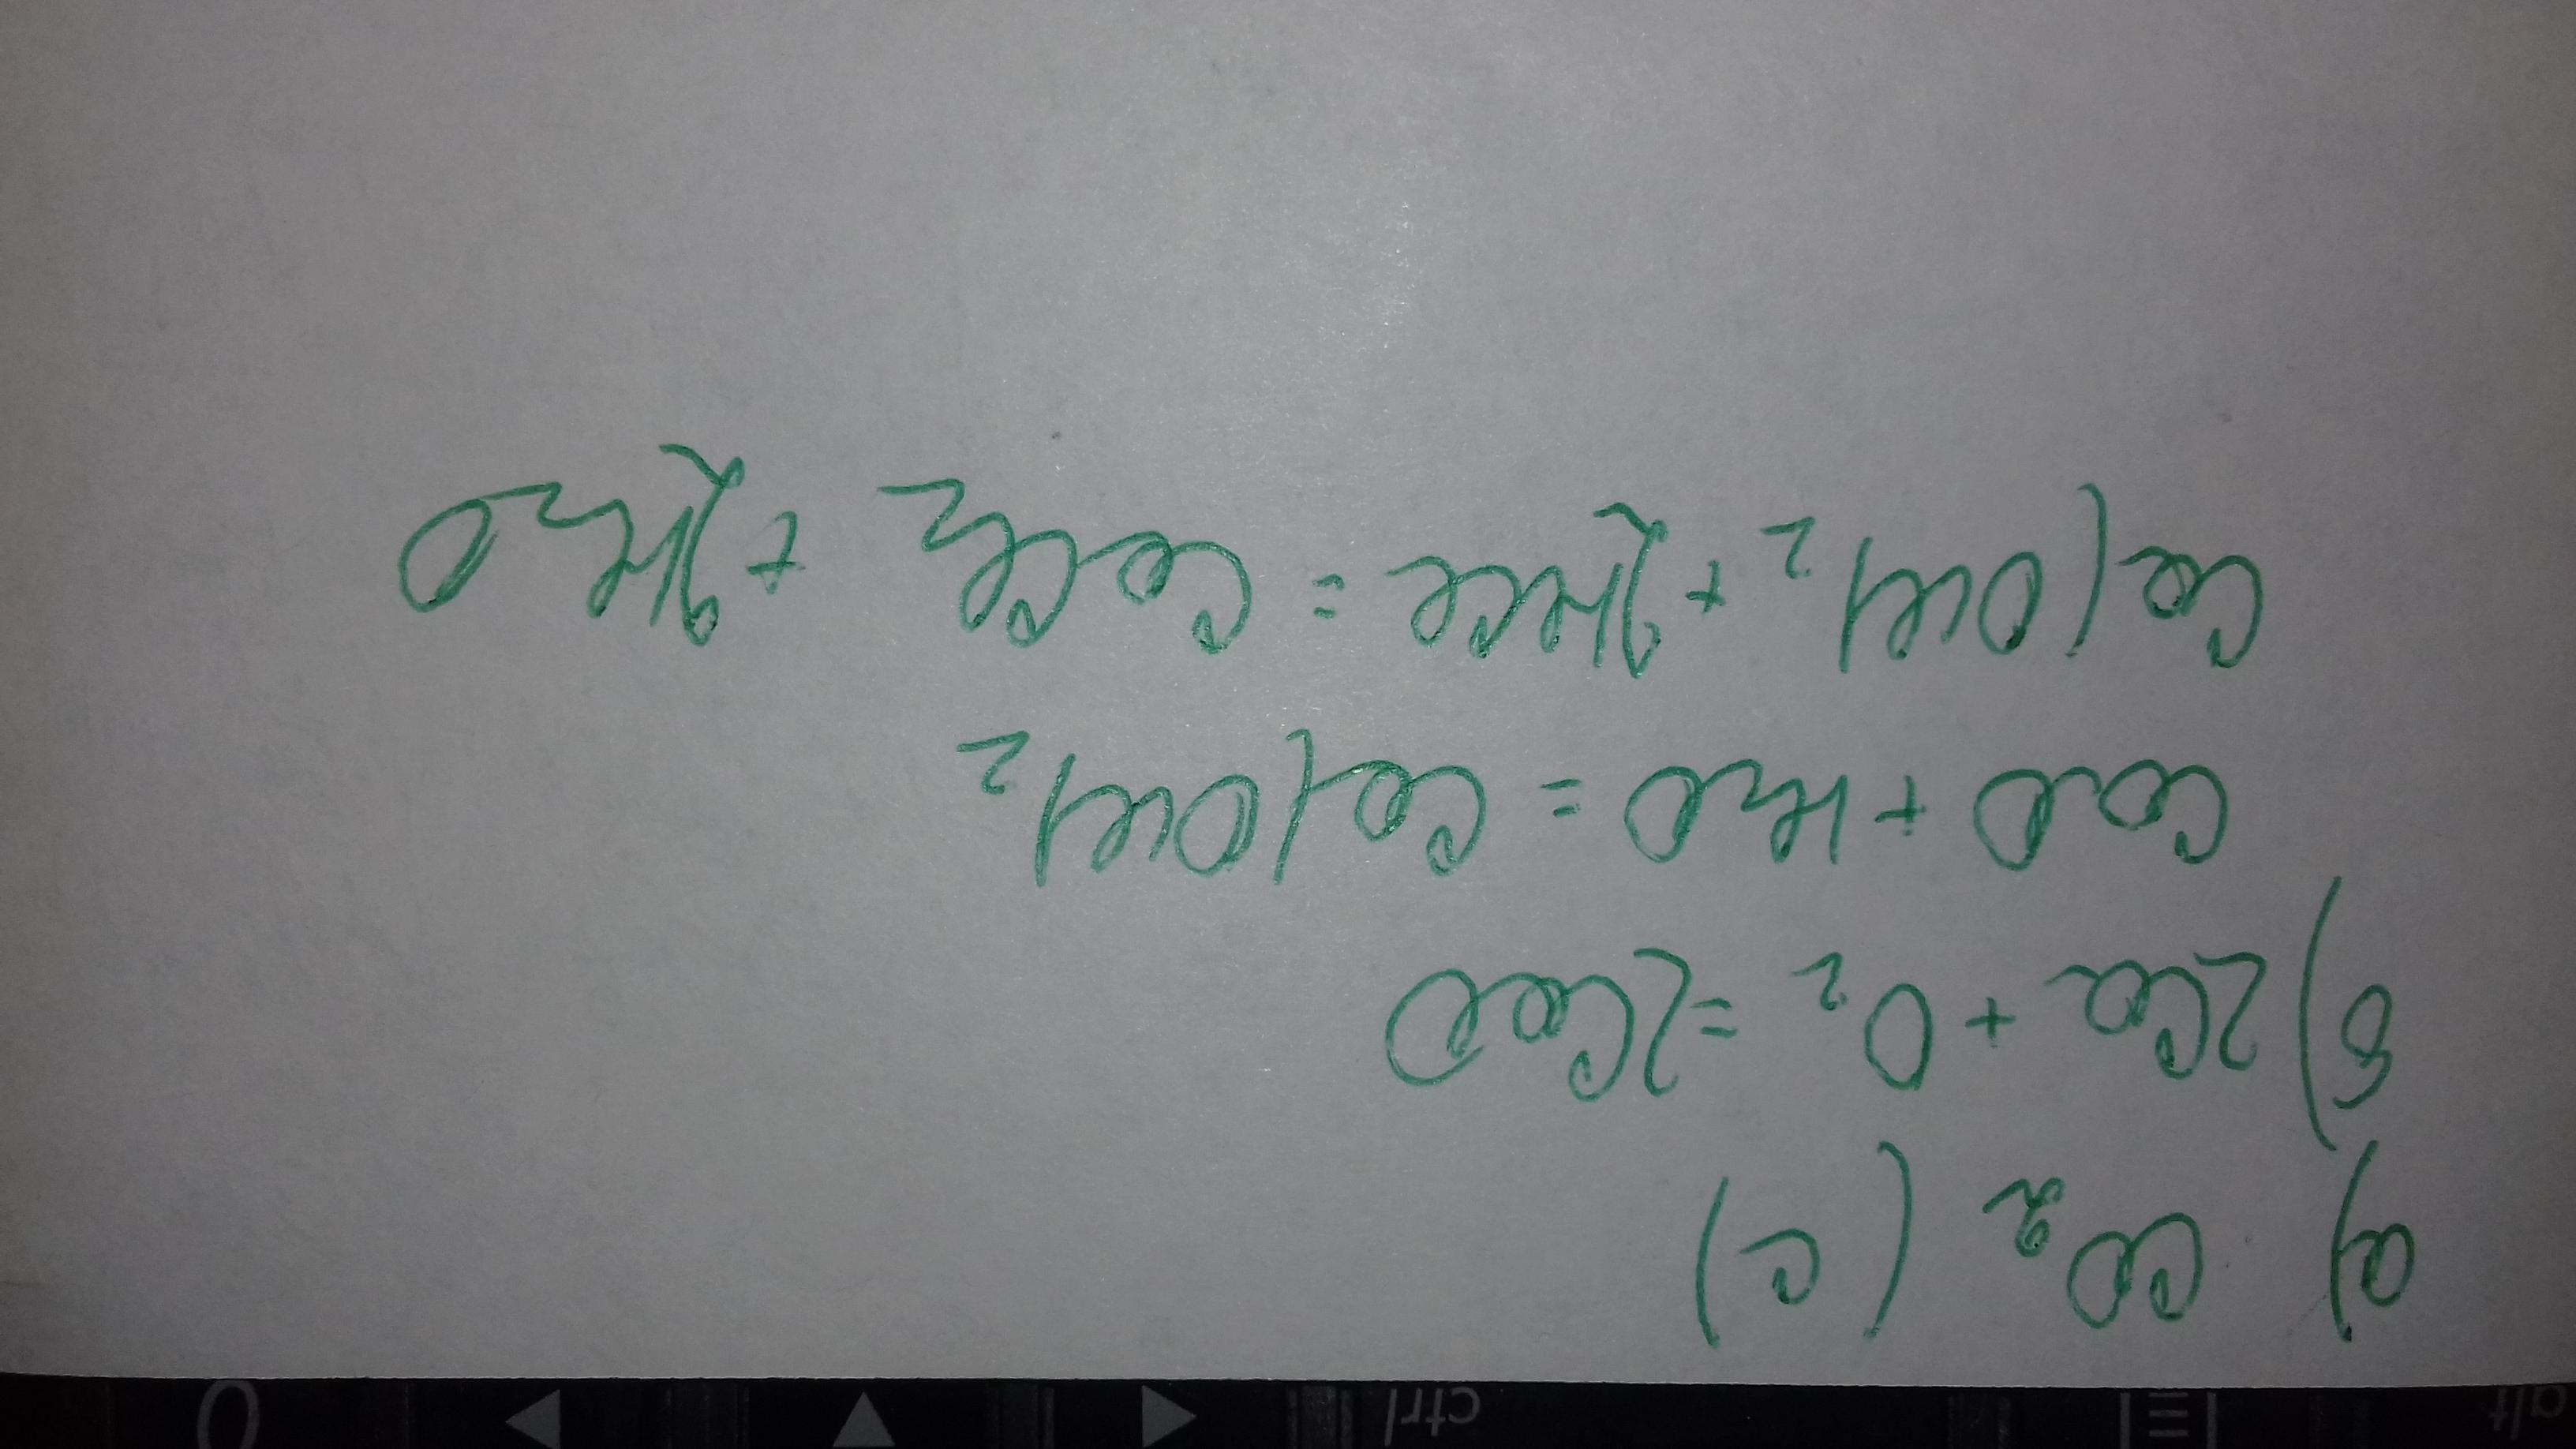 а) CO₂ (C)
б) 2Ca + O₂ = 2CaO
CaO + H₂O = Ca(OH)₂
Ca(OH)₂ + 2HCl = CaCl₂ + 2H₂O
alt
ctrl
0